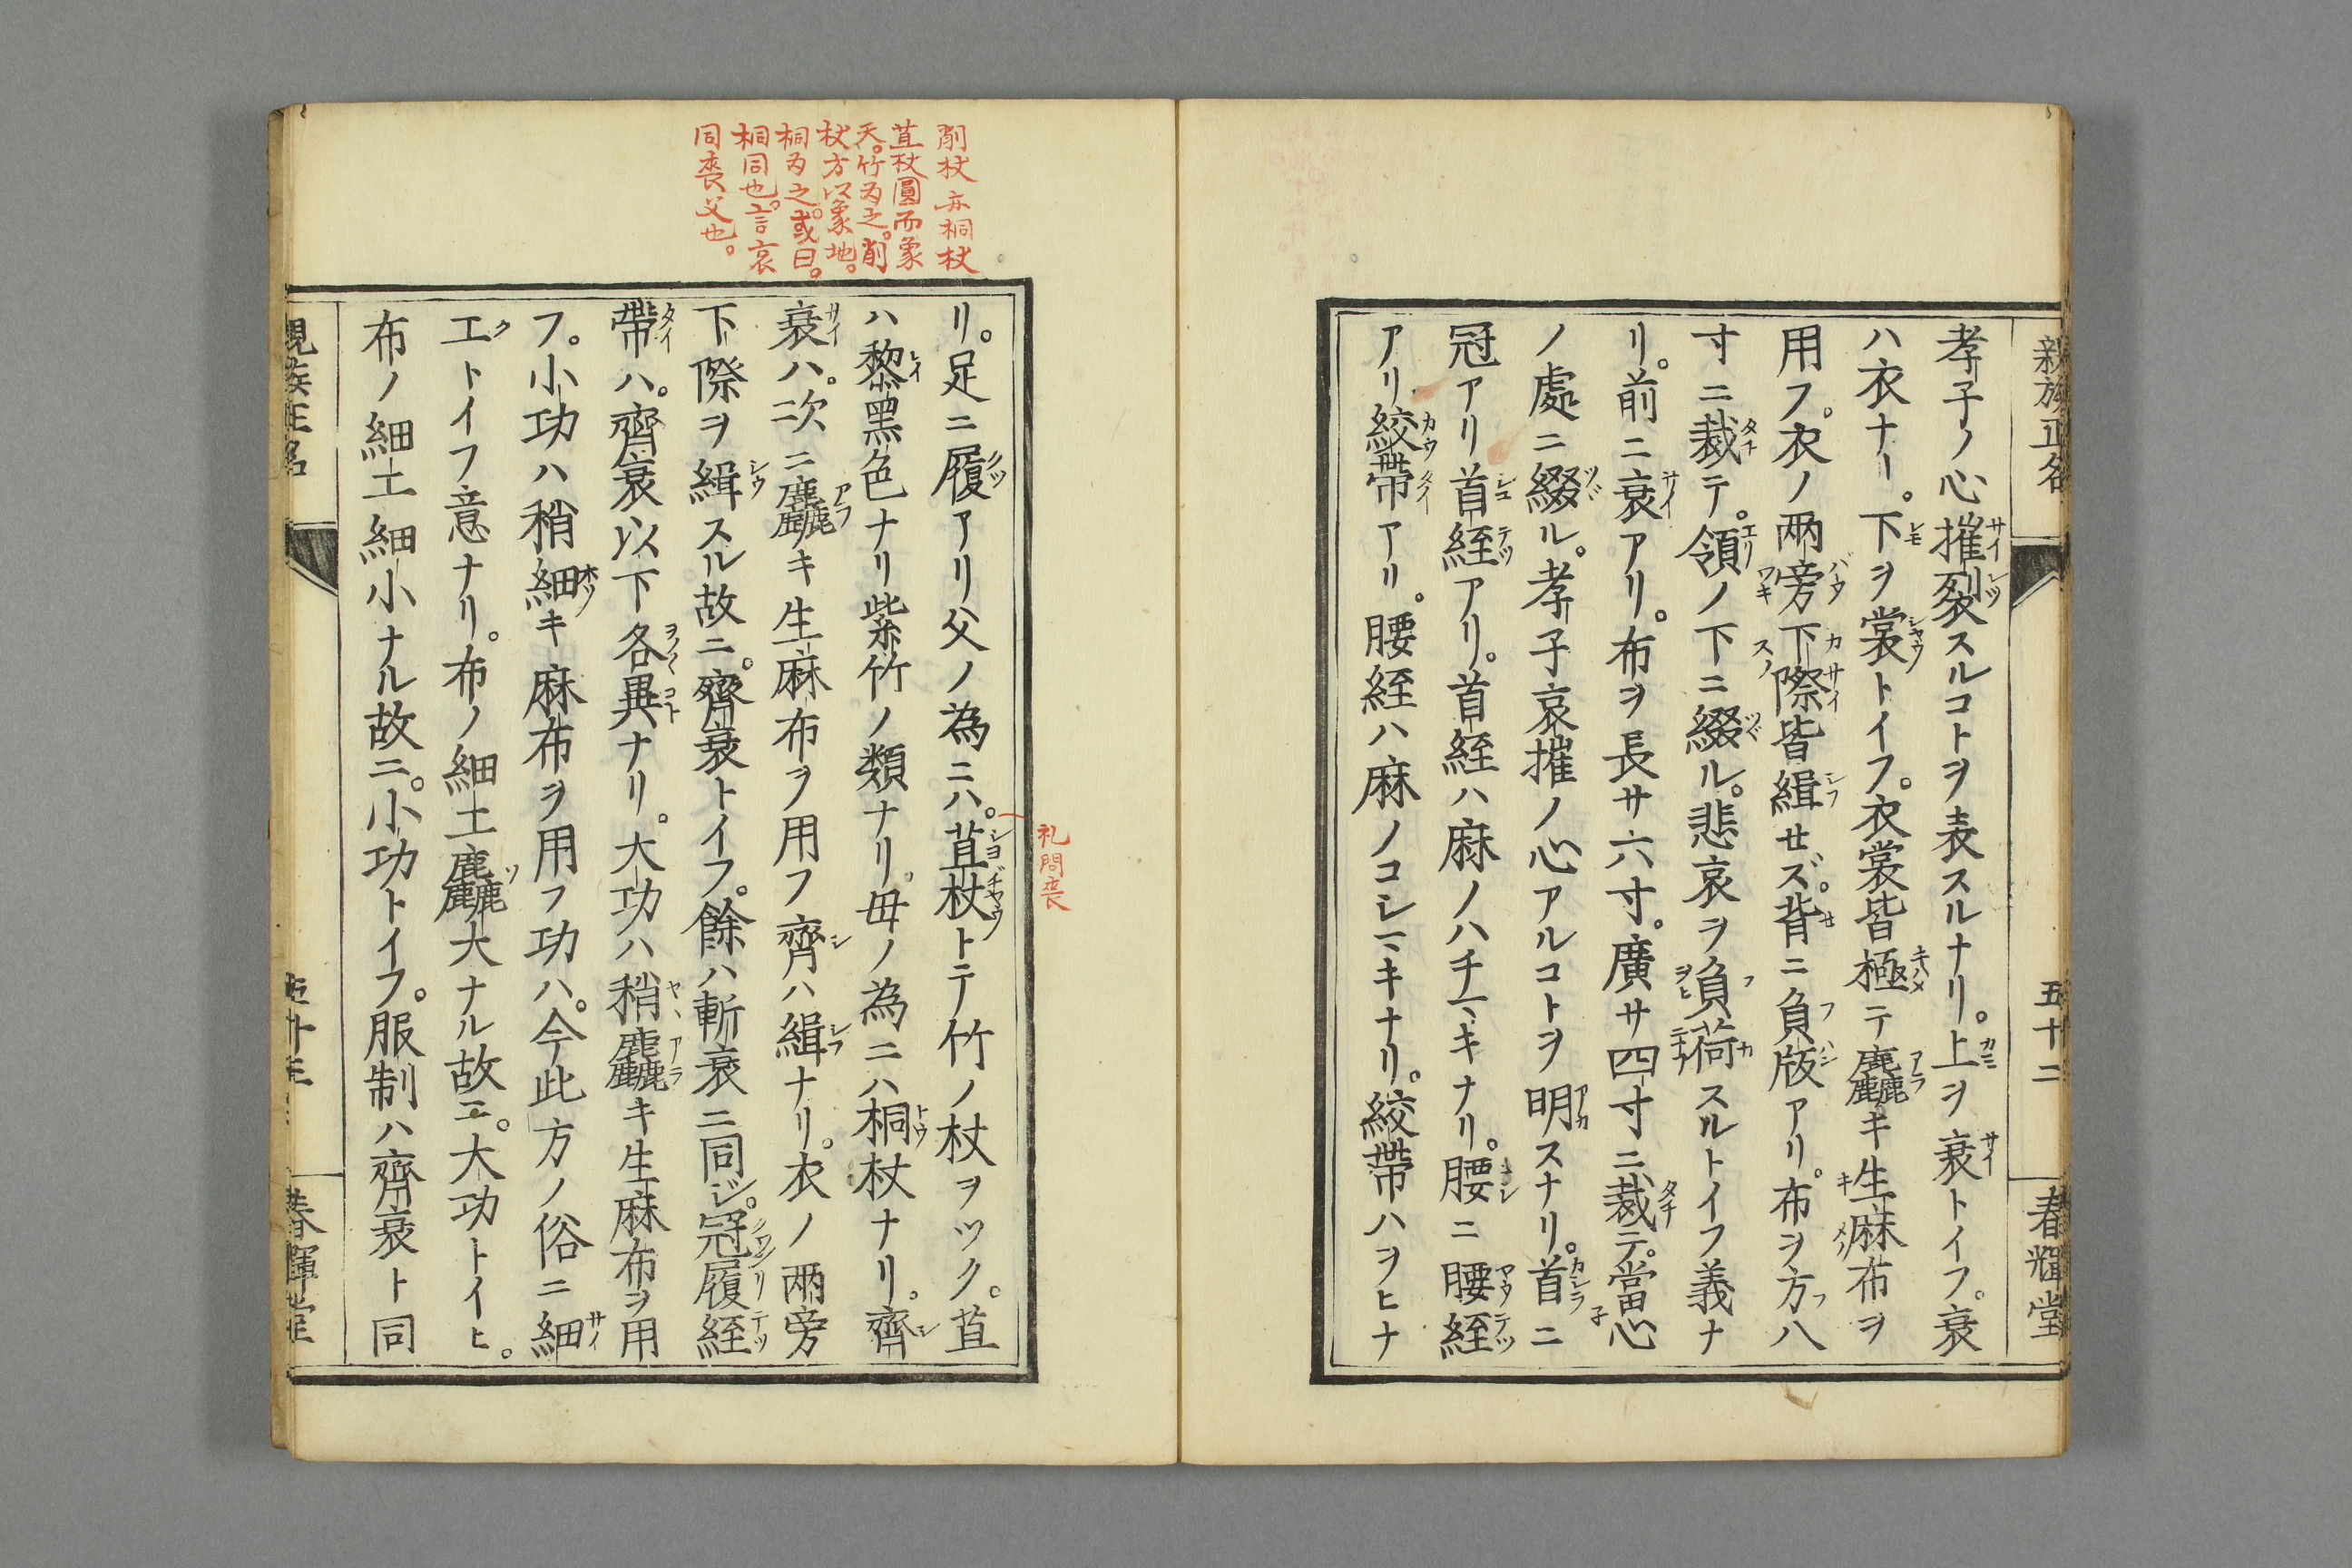 親族正名
五十二
春輝堂
孝子ノ心摧裂スルコトヲ表スルナリ。上ヲ衰トイフ。衰
ハ衣ナリ。下ヲ裳トイフ。衣裳皆極テ麤キ生麻布ヲ
用フ。衣ノ兩旁下際皆緝セズ。背ニ負版アリ。布ヲ方八
寸ニ裁テ。領ノ下ニ綴ル。悲哀ヲ負荷スルトイフ義ナ
リ。前ニ衰アリ。布ヲ長サ六寸。廣サ四寸ニ裁テ。當心
ノ處ニ綴ル。孝子哀摧ノ心アルコトヲ明スナリ。首ニ
冠アリ首絰アリ。首絰ハ麻ノハチマキナリ。腰ニ腰絰
アリ絞帶アリ。腰絰ハ麻ノコシマキナリ。絞帶ハヲヒナ
リ。足ニ履アリ父ノ為ニハ。苴杖トテ竹ノ杖ヲツク。苴
ハ黎黑色ナリ紫竹ノ類ナリ。母ノ為ニハ桐杖ナリ。齊
衰ハ。次ニ麤キ生麻布ヲ用フ齊ハ緝ナリ。衣ノ兩旁
下際ヲ緝スル故ニ。齊衰トイフ。餘ハ斬衰ニ同ジ。冠履絰
帶ハ。齊衰以下各異ナリ。大功ハ稍麤キ生麻布ヲ用
フ。小功ハ稍細キ麻布ヲ用フ功ハ。今此方ノ俗ニ細
工トイフ意ナリ。布ノ細工麤大ナル故ニ。大功トイヒ。
布ノ細工細小ナル故ニ。小功トイフ。服制ハ齊衰ト同
礼問喪
削杖亦桐杖
苴杖圓而象
天。竹為之。削
杖方以象地。
桐為之。或曰。
桐同也。言哀
同喪父也。
親族正名
春輝堂